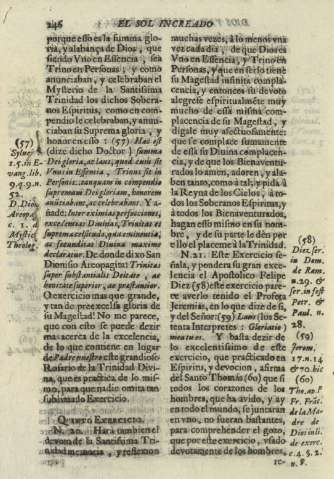 246 EL SOL INCREADO
porque esso es la summa glo-
ria, y alabança de Dios, que
siendo Vno en Essencia, sea
Trino en Personas; y como
anunciaban, y celebraban el
Mysterio de la Santissima
Trinidad los dichos Sobera-
nos Espiritus, como en com-
pendio le celebraban, y anun-
ciaban su Suprema gloria, y
honor en ello: (57) Hæc est
(dize dicho Doctor) summa
Dei gloria, ac laus, quod cum sit
Vnus in Essentia, Trinus sit in
Personis: tanquam in compendio
supremam Dei gloriam, honorem
anuntiabant, ac celebrabant. Y a-
ñade: Inter eximias perfectiones,
excelentias Divinas, Trinitas est
suprema excelsa, quia eminentia,
ac fœcunditas Divina maxime
declaratur. De donde dixo San
Dionisio Areopagita: Trinitas
super substantialis Deitate, ac
bonitate superior, ac præstantior.
O exercicio mas que grande,
y tan de pies excelsa gloria de
su Magestad! No me parece,
que con esto se puede dezir
mas acerca de la excelencia,
de lo que contiene en lugar
de Padre nuestro este grandioso
Rosario de la Trinidad Divi-
na, que es practica de lo mis-
mo, para que nadie omita tan
subido Exercicio.
QVARTO EXERCICIO.
N. 20. Harà tambien el
devoto de la Santissima Tri-
nidad memoria, y rezesos
(57)
Sylveir.
t. 5. in E-
vang. lib.
9. q. 9. n.
52.
D. Dio.
Areopa.
c. 1. de
Mistica
Theolog.
muchas vezes, à lo menos vna
vez cada dia, de que Dios es
Vno en Essencia, y Trino en
Personas, y que en serlo tiene
su Magestad infinita compla-
cencia, y entonces su devoto
alegrese espiritualmẽte muy
mucho de essa misma com-
placencia de su Magestad, y
digale muy afectuosamente:
que se complace sumamente
de essa su Divina complacen-
cia, y de que los Bienaventu-
rados lo amen, adoren, y ala-
ben tanto, como à tal, y pida à
la Reyna de los Cielos, à to-
dos los Soberanos Espiritus, y
à todos los Bienaventurados,
hagan esto mismo en su nom-
bre, y de su parte le dèn por
ello el placeme à la Trinidad.
N. 21. Este Exercicio se-
ñala, y pondera su gran exce-
lencia el Apostolico Felipe
Diez (58) este exercicio pare-
ce averlo tenido el Profeta
Jeremias, en lo que dize de sì,
y del Señor: (59) Laus (los Se-
tenta Interpretes: Gloriatio)
mea tu es. Y basta dezir de
lo excelentissimo de este
exercicio, que practicado en
Espiritu, y devocion, afirma
el Santo Thomàs (60) que si
todos los coraçones de los
hombres, que ha avido, y ay
en todo el mundo, se juntaran
en vno, no fueran bastantes,
para comprehender el gozo,
que por este exercicio, vsado
devotamente de los hombres,
(58)
Diez, ser.
in Dom.
de Ram.
n. 29. &
ser. in fest.
Petr. &
Paul. n.
28.
(59)
Jerem.
17. n. 14
& 70 bic
(60)
Tho. in I
de exerc.
c. 4. §. 2.
n. 8.